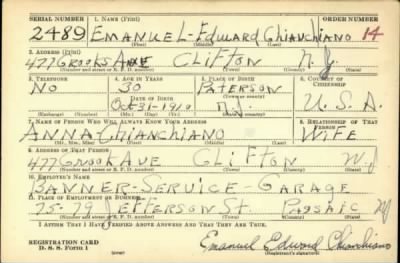 SERIAL NUMBER 1. NAME (Print) ORDER NUMBER
2489 EMANUEL-EDWARD CHIANCHIANO 14
(First) (Middle) (Last)
2. ADDRESS (Print)
477 GROOKS AVE CLIFTON N.J.
(Number and street or R. F. D. number) (Town) (County) (State)
3. TELEPHONE 4. AGE IN YEARS 5. PLACE OF BIRTH 6. COUNTRY OF CITIZENSHIP
NO 30 PATERSON
DATE OF BIRTH (Town or county)
OCT-31-1910 N.J. U.S.A.
(Exchange) (Number) (Mo.) (Day) (Yr.) (State or country)
7. NAME OF PERSON WHO WILL ALWAYS KNOW YOUR ADDRESS 8. RELATIONSHIP OF THAT PERSON
ANNA CHIANCHIANO WIFE
(Mr., Mrs., Miss) (First) (Middle) (Last)
9. ADDRESS OF THAT PERSON
477 GROOK AVE CLIFTON N.J
(Number and street or R. F. D. number) (Town) (County) (State)
10. EMPLOYER'S NAME
BANNER-SERVICE-GARAGE
11. PLACE OF EMPLOYMENT OR BUSINESS
75-79 JEFFERSON ST. PASSAIC NJ
(Number and street or R. F. D. number) (Town) (County) (State)
I AFFIRM THAT I HAVE VERIFIED ABOVE ANSWERS AND THAT THEY ARE TRUE.
REGISTRATION CARD
D. S. S. FORM 1 (over) Emanuel Edward Chianchiano
(Registrant's signature)